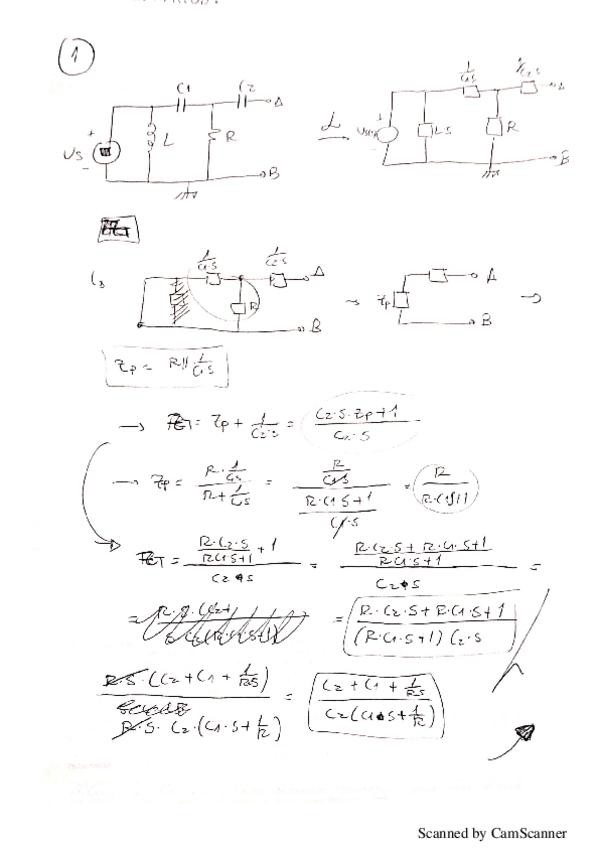 1
C1 C2 A
+ Us - L R B
L
1/C1S 1/C2S A
+ - LS R B
1/C1S 1/C2S A
R B
Zp A
B
Zp = R // 1/C1S
→ = Zp + 1/C2·S = (C2·S·Zp+1)/(C2·S)
→ Zp = (R·1/C1S)/(R+1/C1S) = (R/C1S)/((R·C1S+1)/(C1·S)) = R/(R·C1S+1)
= ((R·C2·S)/(R·C1·S+1) + 1)/(C2·S) = ((R·C2·S + R·C1·S+1)/(R·C1·S+1))/(C2·S) =
= = (R·C2·S + R·C1·S+1)/((R·C1·S+1) C2·S)
(R·S·(C2 + C1 + 1/RS))/(R·S·C2·(C1·S + 1/R)) = (C2 + C1 + 1/RS)/(C2(C1·S + 1/R))
Scanned by CamScanner